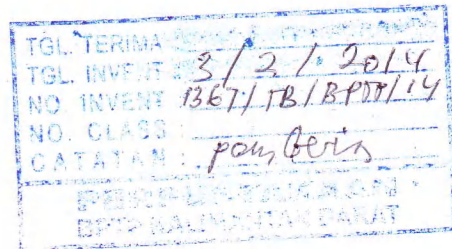 TGL. TERIMA
TGL. INVENT 3 / 2 / 2014
NO. INVENT 1367 / TB / BPTP / 14
NO. CLASS :
CATATAN :
PERPUSTAKAAN
BPTP KALIMANTAN BARAT